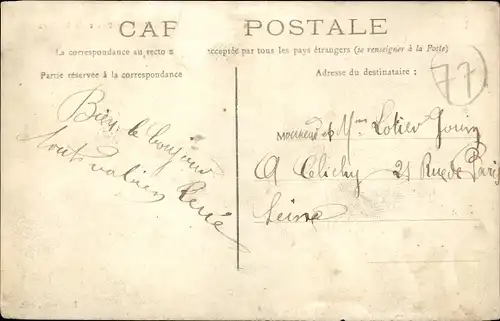 CAR POSTALE
La correspondance au recto n acceptée par tous les pays étrangers (se renseigner à la Poste)
Partie réservée à la correspondance
Adresse du destinataire :
77
Bien le bonjour
tout va bien
René
Monsieur et Mme
A Clichy 21 Rue de Paris
Seine